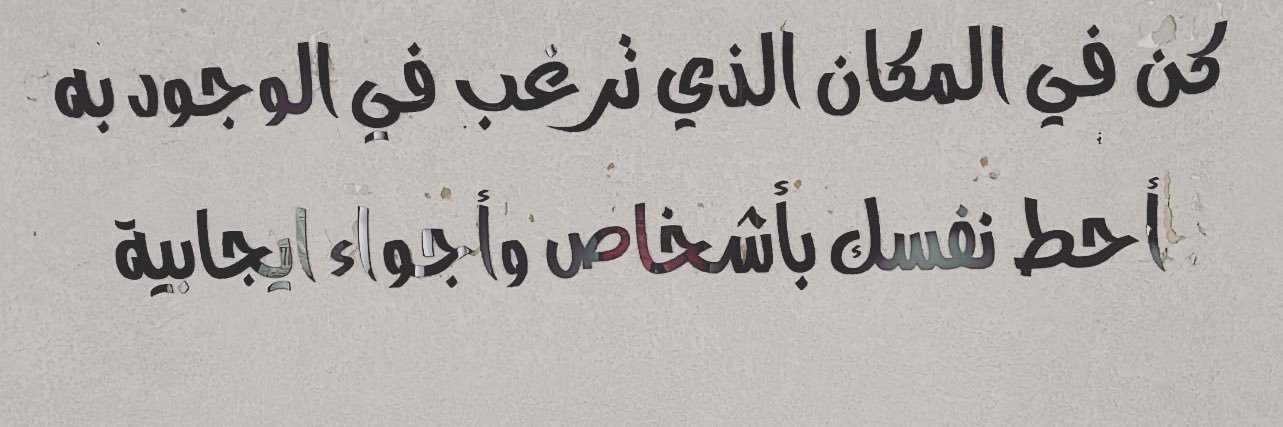 كن في المكان الذي ترغب في الوجود به
أحط نفسك بأشخاص وأجواء ايجابية